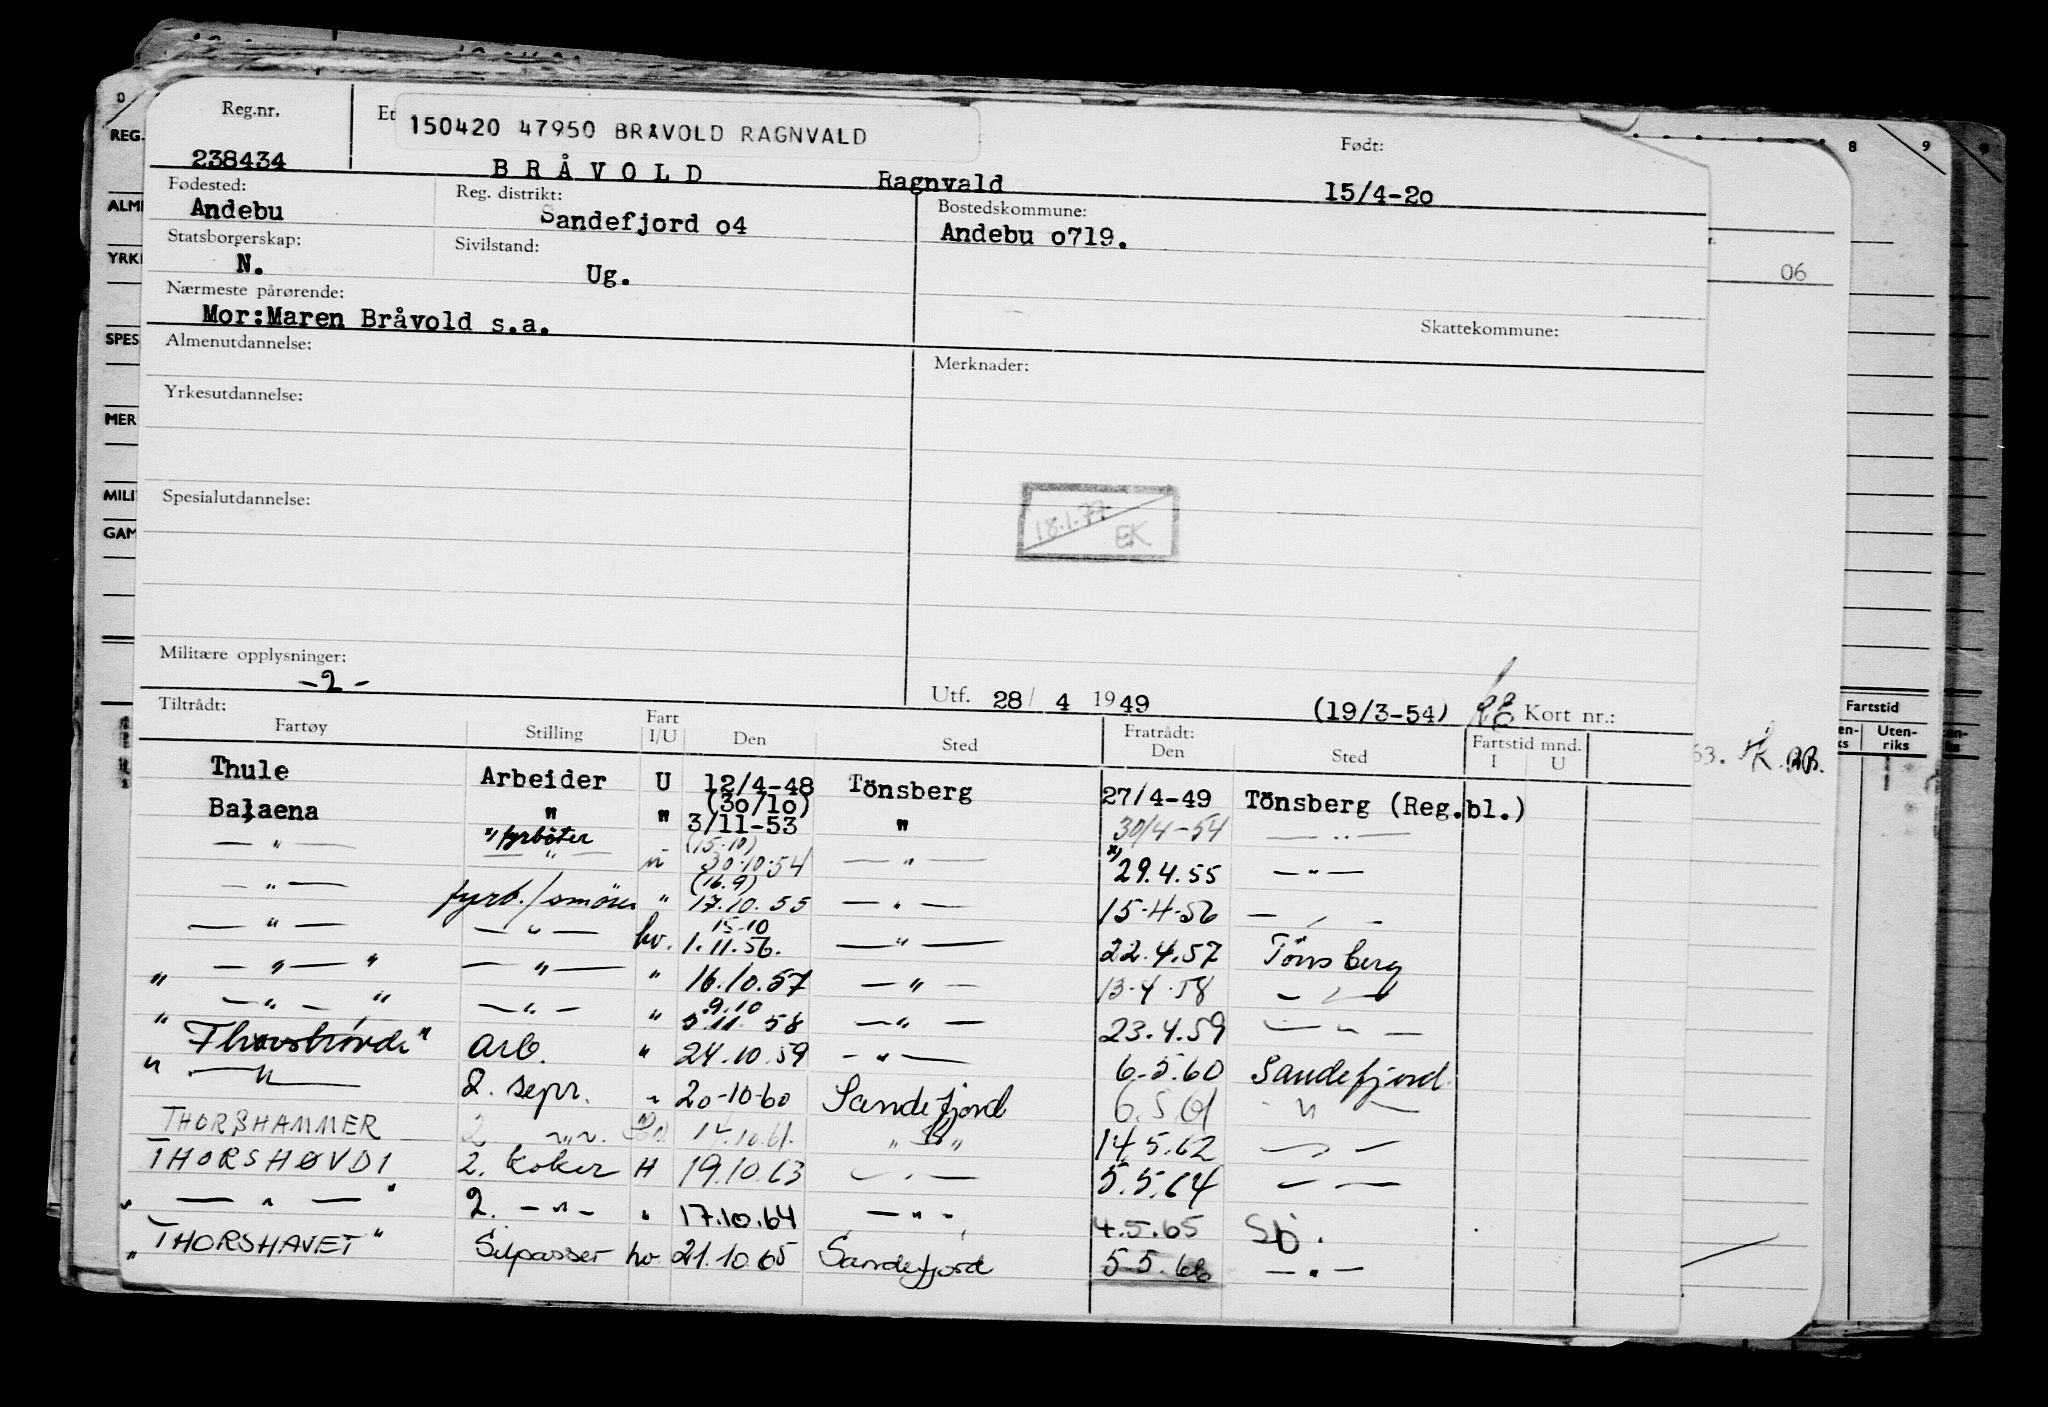 Reg.nr. Et 150420 47950 BRÅVOLD RAGNVALD Født:
238434 BRÅVOLD Ragnvald 15/4-20
Fødested: Reg. distrikt: Bostedskommune:
Andebu Sandefjord o4 Andebu o719.
Statsborgerskap: Sivilstand:
N. Ug.
Nærmeste pårørende:
Mor:Maren Bråvold s.a. Skattekommune:
Almenutdannelse: Merknader:
Yrkesutdannelse:
Spesialutdannelse:
18.1.77 EK
Militære opplysninger:
-2- Utf. 28/ 4 1949 (19/3-54) Kort nr.:
Tiltrådt: Fratrådt:
Fartøy Stilling Fart I/U Den Sted Den Sted Fartstid mnd. I U
Thule Arbeider U 12/4-48 Tönsberg 27/4-49 Tönsberg (Reg.bl.)
Balaena " " (30/10) 3/11-53 " 30/4-54 — " —
— " — x) fyrböter — " — " (15.10) 30.10.54 — " — x) 29.4.55 — " —
— " — fyrb./smörer " (16.9) 17.10.55 — " — 15-4-56 — " —
— " — — " — hv. 15-10 1.11.56. — " — 22.4.57 Tönsberg
" — " — " — " — " 16.10.57 — " — 13.4.58 — " —
" — " — " — " — " 9.10 5.11.58 — " — 23.4.59 — " —
" Thorshövdi " Arb. " 24.10.59 — " — 6.5.60 Sandefjord
— " — 2. sepr. " 20-10-60 Sandefjord 6.5.61 — " —
THORSHAMMER 2 — " — 14.10.61. — " — 14.5.62 — " —
THORSHØVDI 2. koker H 19.10.63 — " — 5.5.64 — " —
" — " — " 2. — " — " 17.10.64 — " — 4.5.65 Sö.
" THORSHAVET " Silpasser hv. 21.10.65 Sandefjord 5.5.66 — " —
0 8 9
REG.
ALM
YRK
SPES
MER
MILI
GAM
06
Fartstid
Uten-riks
63.